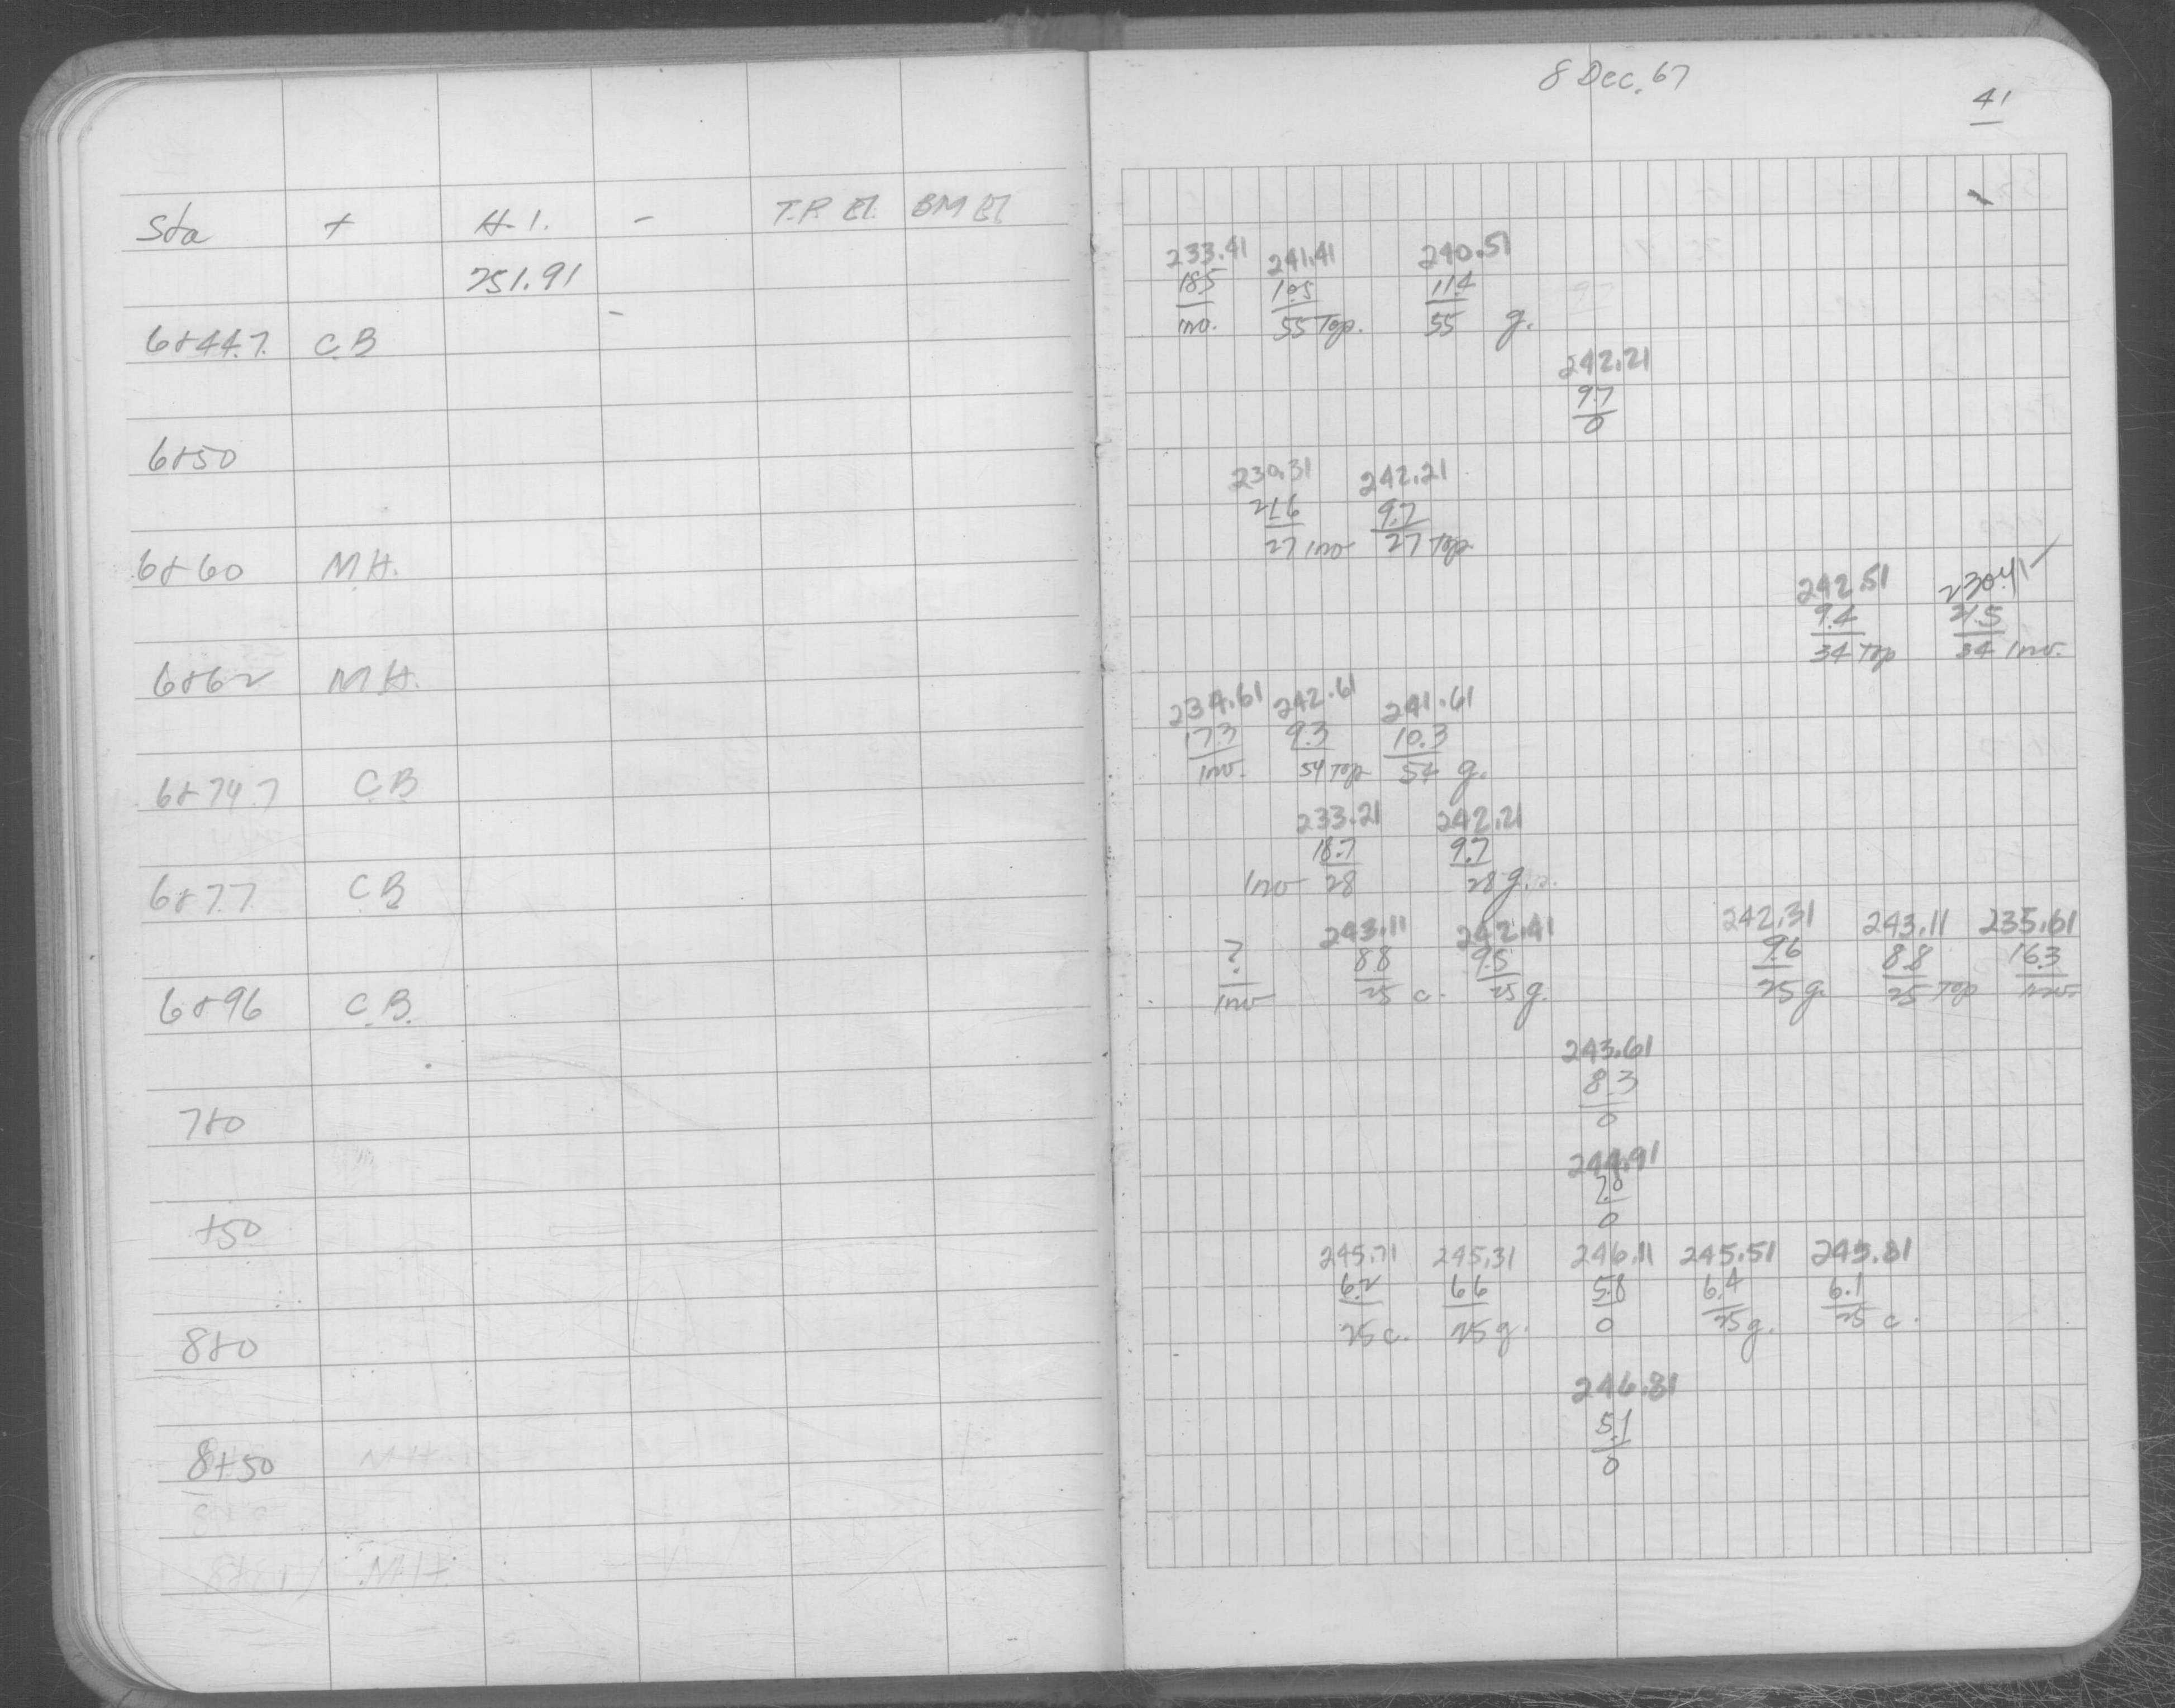 8 Dec. 67
41
Sta + H.I. - T.P. El. BM El.
251.91 -
233.41 241.41 240.51
18.5 10.5 11.4
6+44.7 C.B inv. 55 Top. 55 g.
242.21
9.7
6+50 0
230.31 242.21
21.6 9.7
6+60 M.H. 27 inv 27 Top.
242.51 230.41
9.4 21.5
6+62 M.H. 34 Top 34 Inv.
234.61 242.61 241.61
17.3 9.3 10.3
6+74.7 C.B inv. 54 Top 54 g.
233.21 242.21
18.7 9.7
6+77 C.B Inv 28 28 g.
243.11 242.41 242.31 243.11 235.61
? 8.8 9.5 9.6 8.8 16.3
6+96 C.B. inv 25 c. 25 g. 25 g. 25 Top inv.
243.61
8.3
7+0 0
244.91
7.0
+50 0
245.71 245.31 246.11 245.51 245.81
6.2 6.6 5.8 6.4 6.1
8+0 25 c. 25 g. 0 25 g. 25 c.
246.81
5.1
8+50 M.H. 0
M.H.